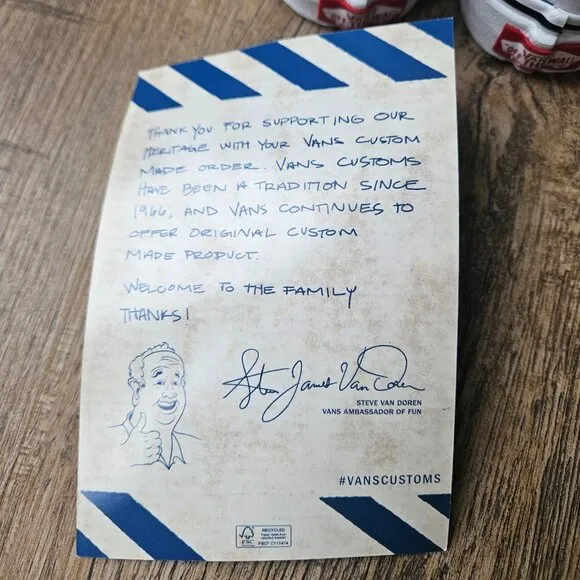 THANK YOU FOR SUPPORTING OUR
HERITAGE WITH YOUR VANS CUSTOM
MADE ORDER. VANS CUSTOMS
HAVE BEEN A TRADITION SINCE
1966, AND VANS CONTINUES TO
OFFER ORIGINAL CUSTOM
MADE PRODUCT.
WELCOME TO THE FAMILY
THANKS!
Steve James Van Doren
STEVE VAN DOREN
VANS AMBASSADOR OF FUN
#VANSCUSTOMS
FSC
RECYCLED